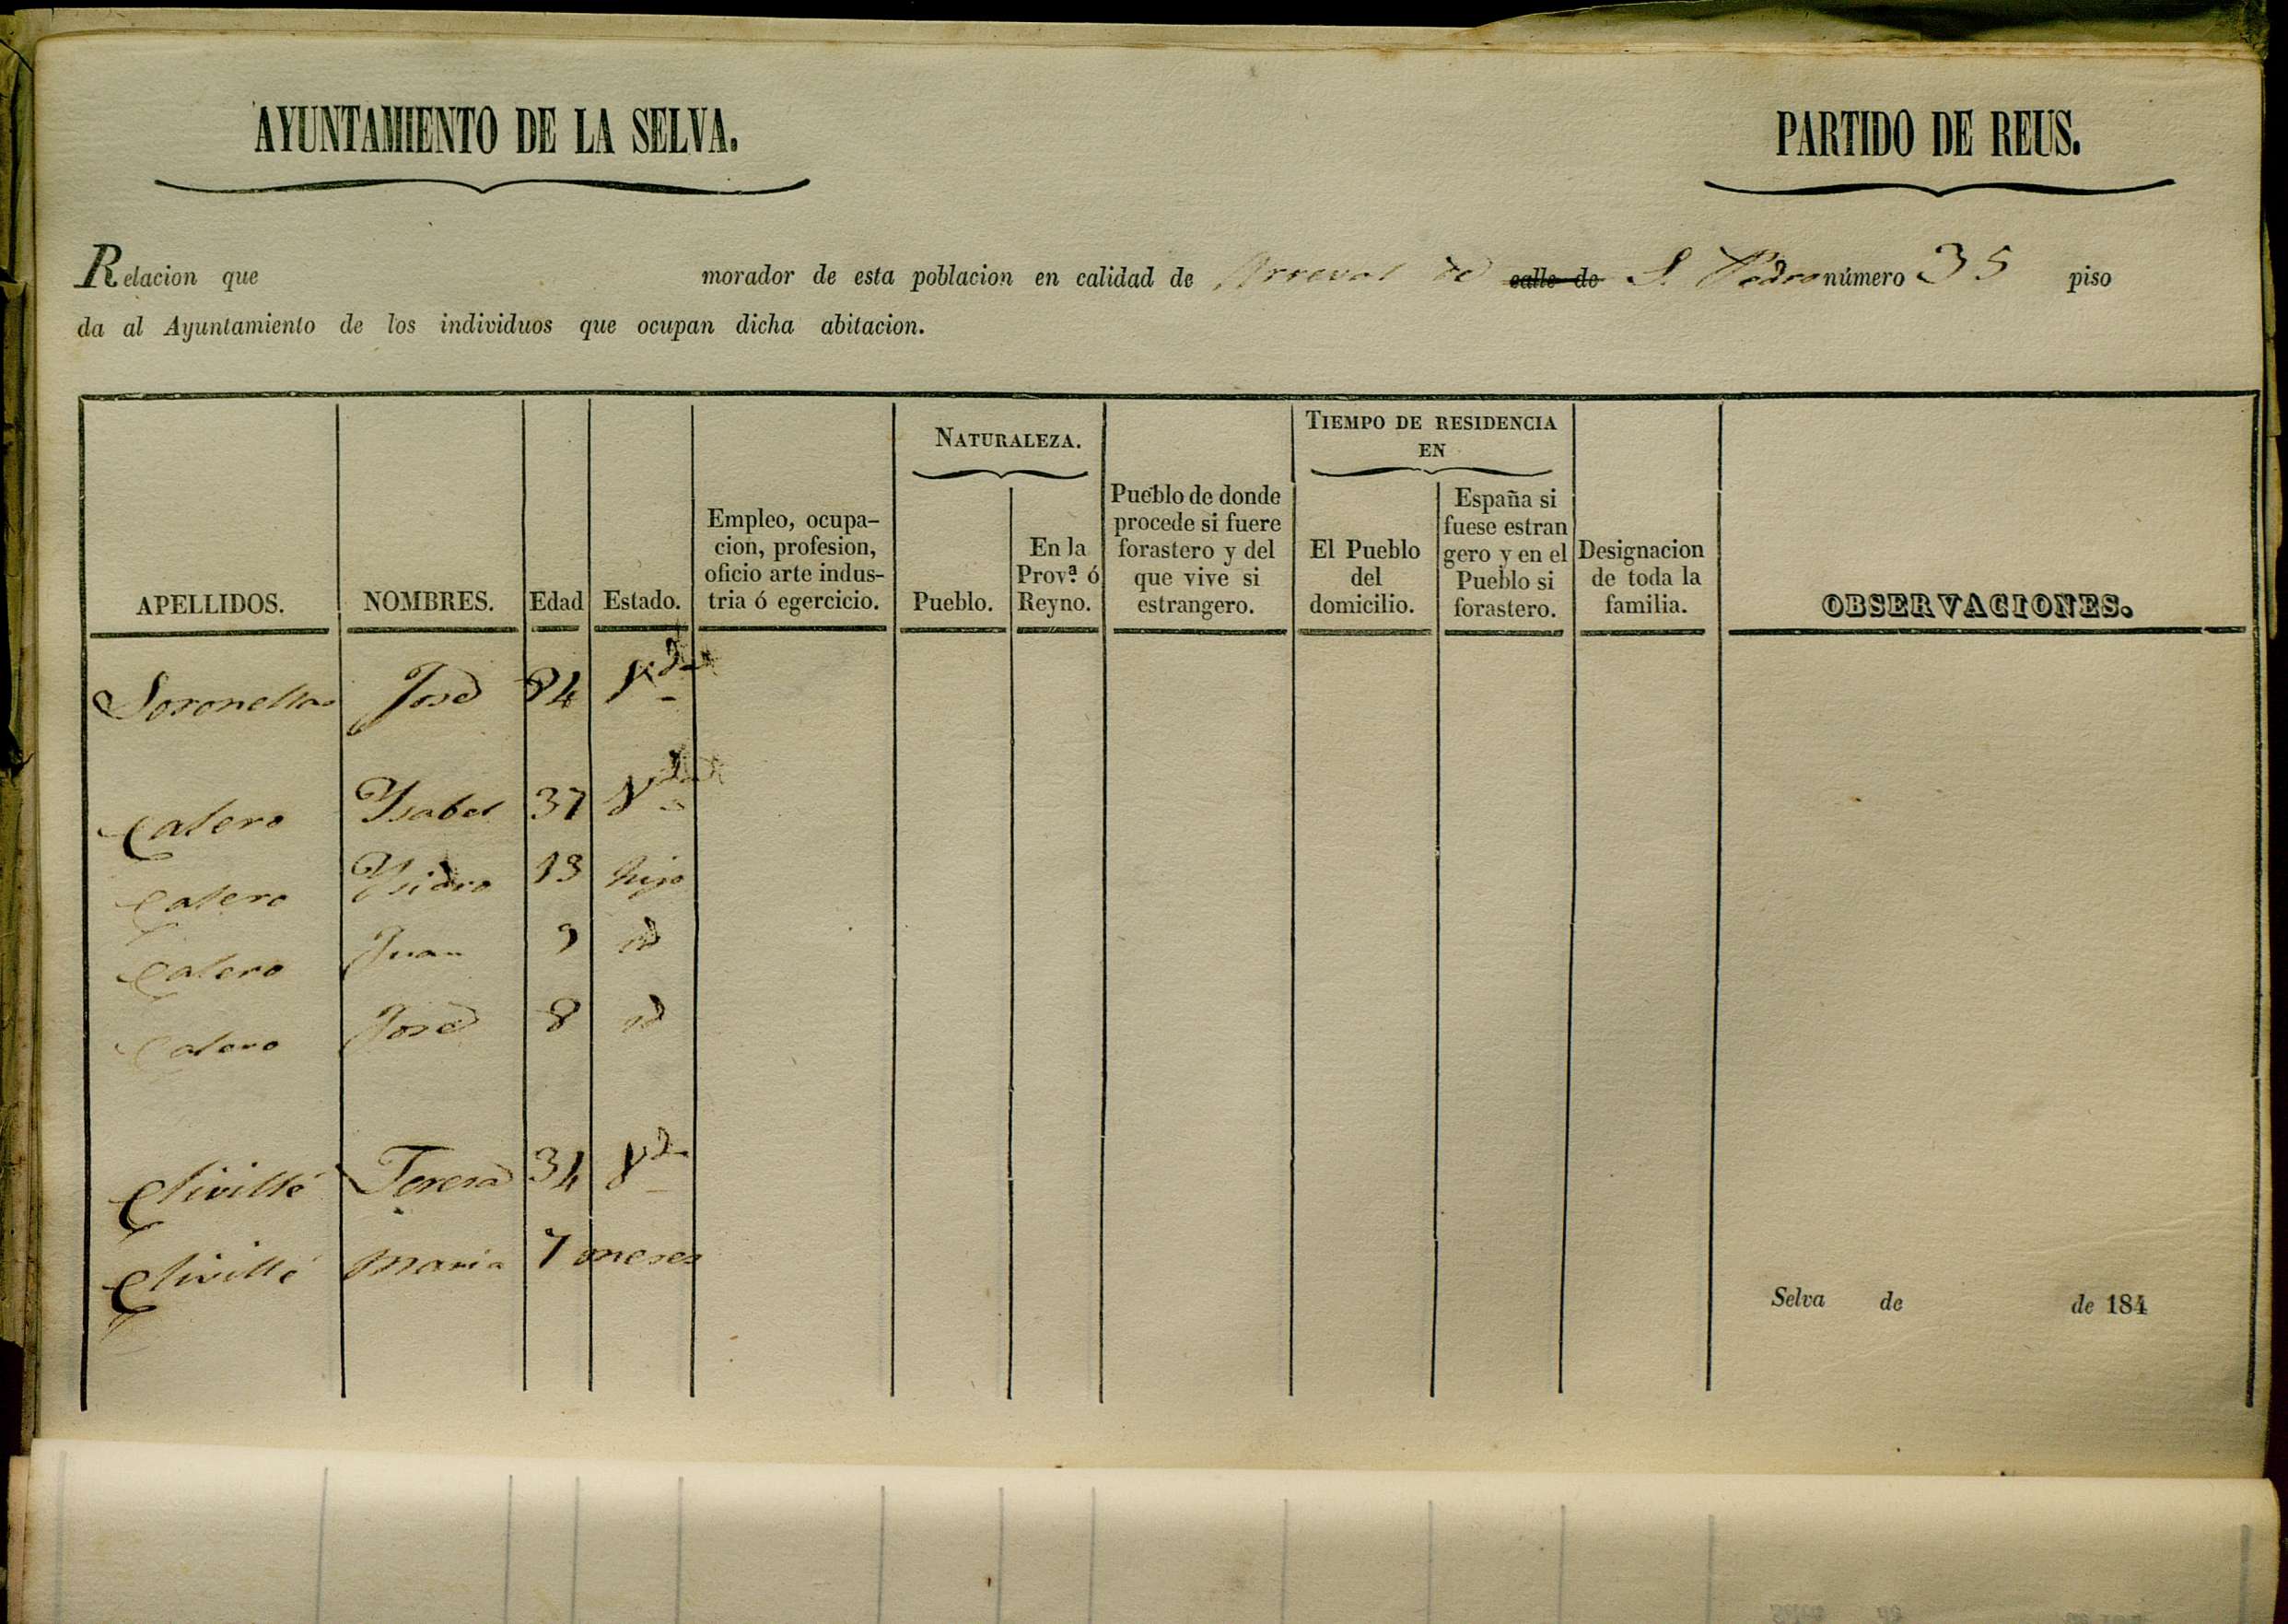 AYUNTAMIENTO DE LA SELVA. PARTIDO DE REUS.
Relacion que morador de esta poblacion en calidad de Arreval de calle de S. Pedro número 35 piso
da al Ayuntamiento de los individuos que ocupan dicha abitacion.
APELLIDOS. NOMBRES. Edad Estado. Empleo, ocupa-
cion, profesion,
oficio arte indus-
tria ó egercicio.
NATURALEZA.
Pueblo.
En la
Prov.ª ó
Reyno.
Pueblo de donde
procede si fuere
forastero y del
que vive si
estrangero.
TIEMPO DE RESIDENCIA
EN
El Pueblo
del
domicilio.
España si
fuese estran
gero y en el
Pueblo si
forastero.
Designacion
de toda la
familia.
OBSERVACIONES.
Soronellas José 84 Vdo
Calero Ysabel 37 Vda
Calero Ysidro 13 hijo
Calero Juan 9 id
Calero José 8 id
Clivillé Teresa 34 Vda
Clivillé Maria 7 meses
Selva de de 184